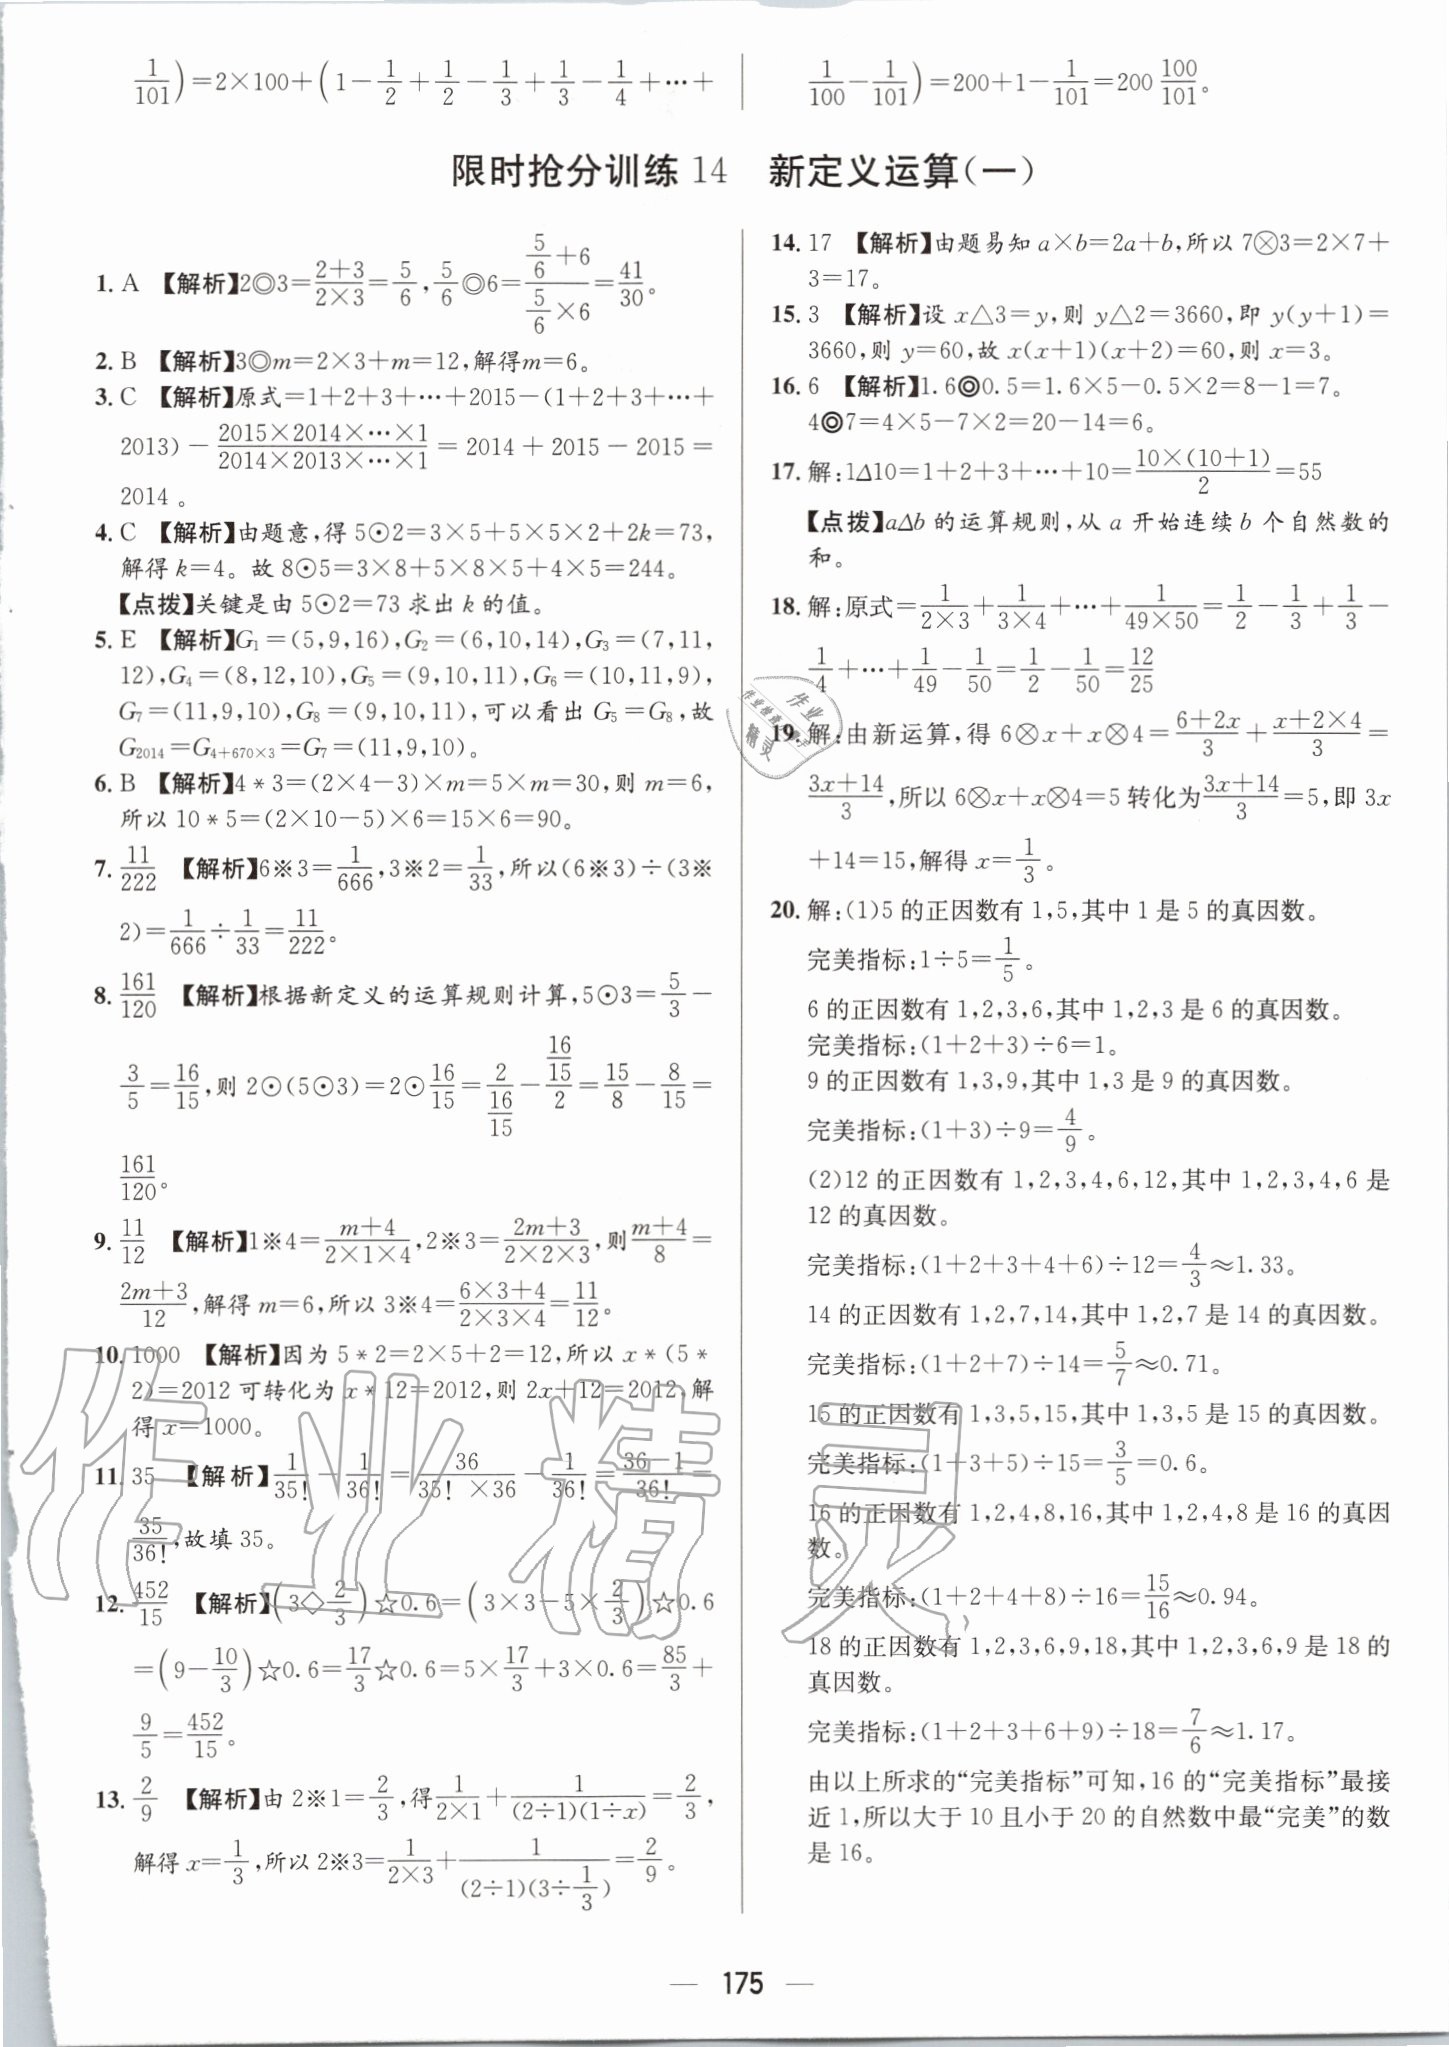 1/101)=2×100+(1-1/2+1/2-1/3+1/3-1/4+…+
1/100-1/101)=200+1-1/101=200 100/101。
限时抢分训练14 新定义运算(一)
1. A 【解析】2◎3=(2+3)/(2×3)=5/6,5/6◎6=(5/6+6)/(5/6×6)=41/30。
2. B 【解析】3◎m=2×3+m=12,解得m=6。
3. C 【解析】原式=1+2+3+…+2015-(1+2+3+…+
2013)-(2015×2014×…×1)/(2014×2013×…×1)=2014+2015-2015=
2014。
4. C 【解析】由题意,得5⊙2=3×5+5×5×2+2k=73,
解得k=4。故8⊙5=3×8+5×8×5+4×5=244。
【点拨】关键是由5⊙2=73求出k的值。
5. E 【解析】G₁=(5,9,16),G₂=(6,10,14),G₃=(7,11,
12),G₄=(8,12,10),G₅=(9,10,11),G₆=(10,11,9),
G₇=(11,9,10),G₈=(9,10,11),可以看出G₅=G₈,故
G₂₀₁₄=G₄₊₆₇₀×₃=G₇=(11,9,10)。
6. B 【解析】4*3=(2×4-3)×m=5×m=30,则m=6,
所以10*5=(2×10-5)×6=15×6=90。
7. 11/222 【解析】6※3=1/666,3※2=1/33,所以(6※3)÷(3※
2)=1/666÷1/33=11/222。
8. 161/120 【解析】根据新定义的运算规则计算,5⊙3=5/3-
3/5=16/15,则2⊙(5⊙3)=2⊙16/15=2/(16/15)-(16/15)/2=15/8-8/15=
161/120。
9. 11/12 【解析】1※4=(m+4)/(2×1×4),2※3=(2m+3)/(2×2×3),则(m+4)/8=
(2m+3)/12,解得m=6,所以3※4=(6×3+4)/(2×3×4)=11/12。
10. 1000 【解析】因为5*2=2×5+2=12,所以x*(5*
2)=2012可转化为x*12=2012,则2x+12=2012,解
得x=1000。
11. 35 【解析】1/35!-1/36!=36/(35!×36)-1/36!=(36-1)/36!=
35/36!,故填35。
12. 452/15 【解析】(3◇2/3)☆0.6=(3×3-5×2/3)☆0.6
=(9-10/3)☆0.6=17/3☆0.6=5×17/3+3×0.6=85/3+
9/5=452/15。
13. 2/9 【解析】由2※1=2/3,得1/(2×1)+1/((2÷1)(1÷x))=2/3,
解得x=1/3,所以2※3=1/(2×3)+1/((2÷1)(3÷1/3))=2/9。
14. 17 【解析】由题易知a×b=2a+b,所以7⊗3=2×7+
3=17。
15. 3 【解析】设x△3=y,则y△2=3660,即y(y+1)=
3660,则y=60,故x(x+1)(x+2)=60,则x=3。
16. 6 【解析】1.6◎0.5=1.6×5-0.5×2=8-1=7。
4◎7=4×5-7×2=20-14=6。
17. 解:1Δ10=1+2+3+…+10=(10×(10+1))/2=55
【点拨】aΔb的运算规则,从a开始连续b个自然数的
和。
18. 解:原式=1/(2×3)+1/(3×4)+…+1/(49×50)=1/2-1/3+1/3-
1/4+…+1/49-1/50=1/2-1/50=12/25
19. 解:由新运算,得6⊗x+x⊗4=(6+2x)/3+(x+2×4)/3=
(3x+14)/3,所以6⊗x+x⊗4=5转化为(3x+14)/3=5,即3x
+14=15,解得x=1/3。
20. 解:(1)5的正因数有1,5,其中1是5的真因数。
完美指标:1÷5=1/5。
6的正因数有1,2,3,6,其中1,2,3是6的真因数。
完美指标:(1+2+3)÷6=1。
9的正因数有1,3,9,其中1,3是9的真因数。
完美指标:(1+3)÷9=4/9。
(2)12的正因数有1,2,3,4,6,12,其中1,2,3,4,6是
12的真因数。
完美指标:(1+2+3+4+6)÷12=4/3≈1.33。
14的正因数有1,2,7,14,其中1,2,7是14的真因数。
完美指标:(1+2+7)÷14=5/7≈0.71。
15的正因数有1,3,5,15,其中1,3,5是15的真因数。
完美指标:(1+3+5)÷15=3/5=0.6。
16的正因数有1,2,4,8,16,其中1,2,4,8是16的真因
数。
完美指标:(1+2+4+8)÷16=15/16≈0.94。
18的正因数有1,2,3,6,9,18,其中1,2,3,6,9是18的
真因数。
完美指标:(1+2+3+6+9)÷18=7/6≈1.17。
由以上所求的“完美指标”可知,16的“完美指标”最接
近1,所以大于10且小于20的自然数中最“完美”的数
是16。
作业精灵
— 175 —